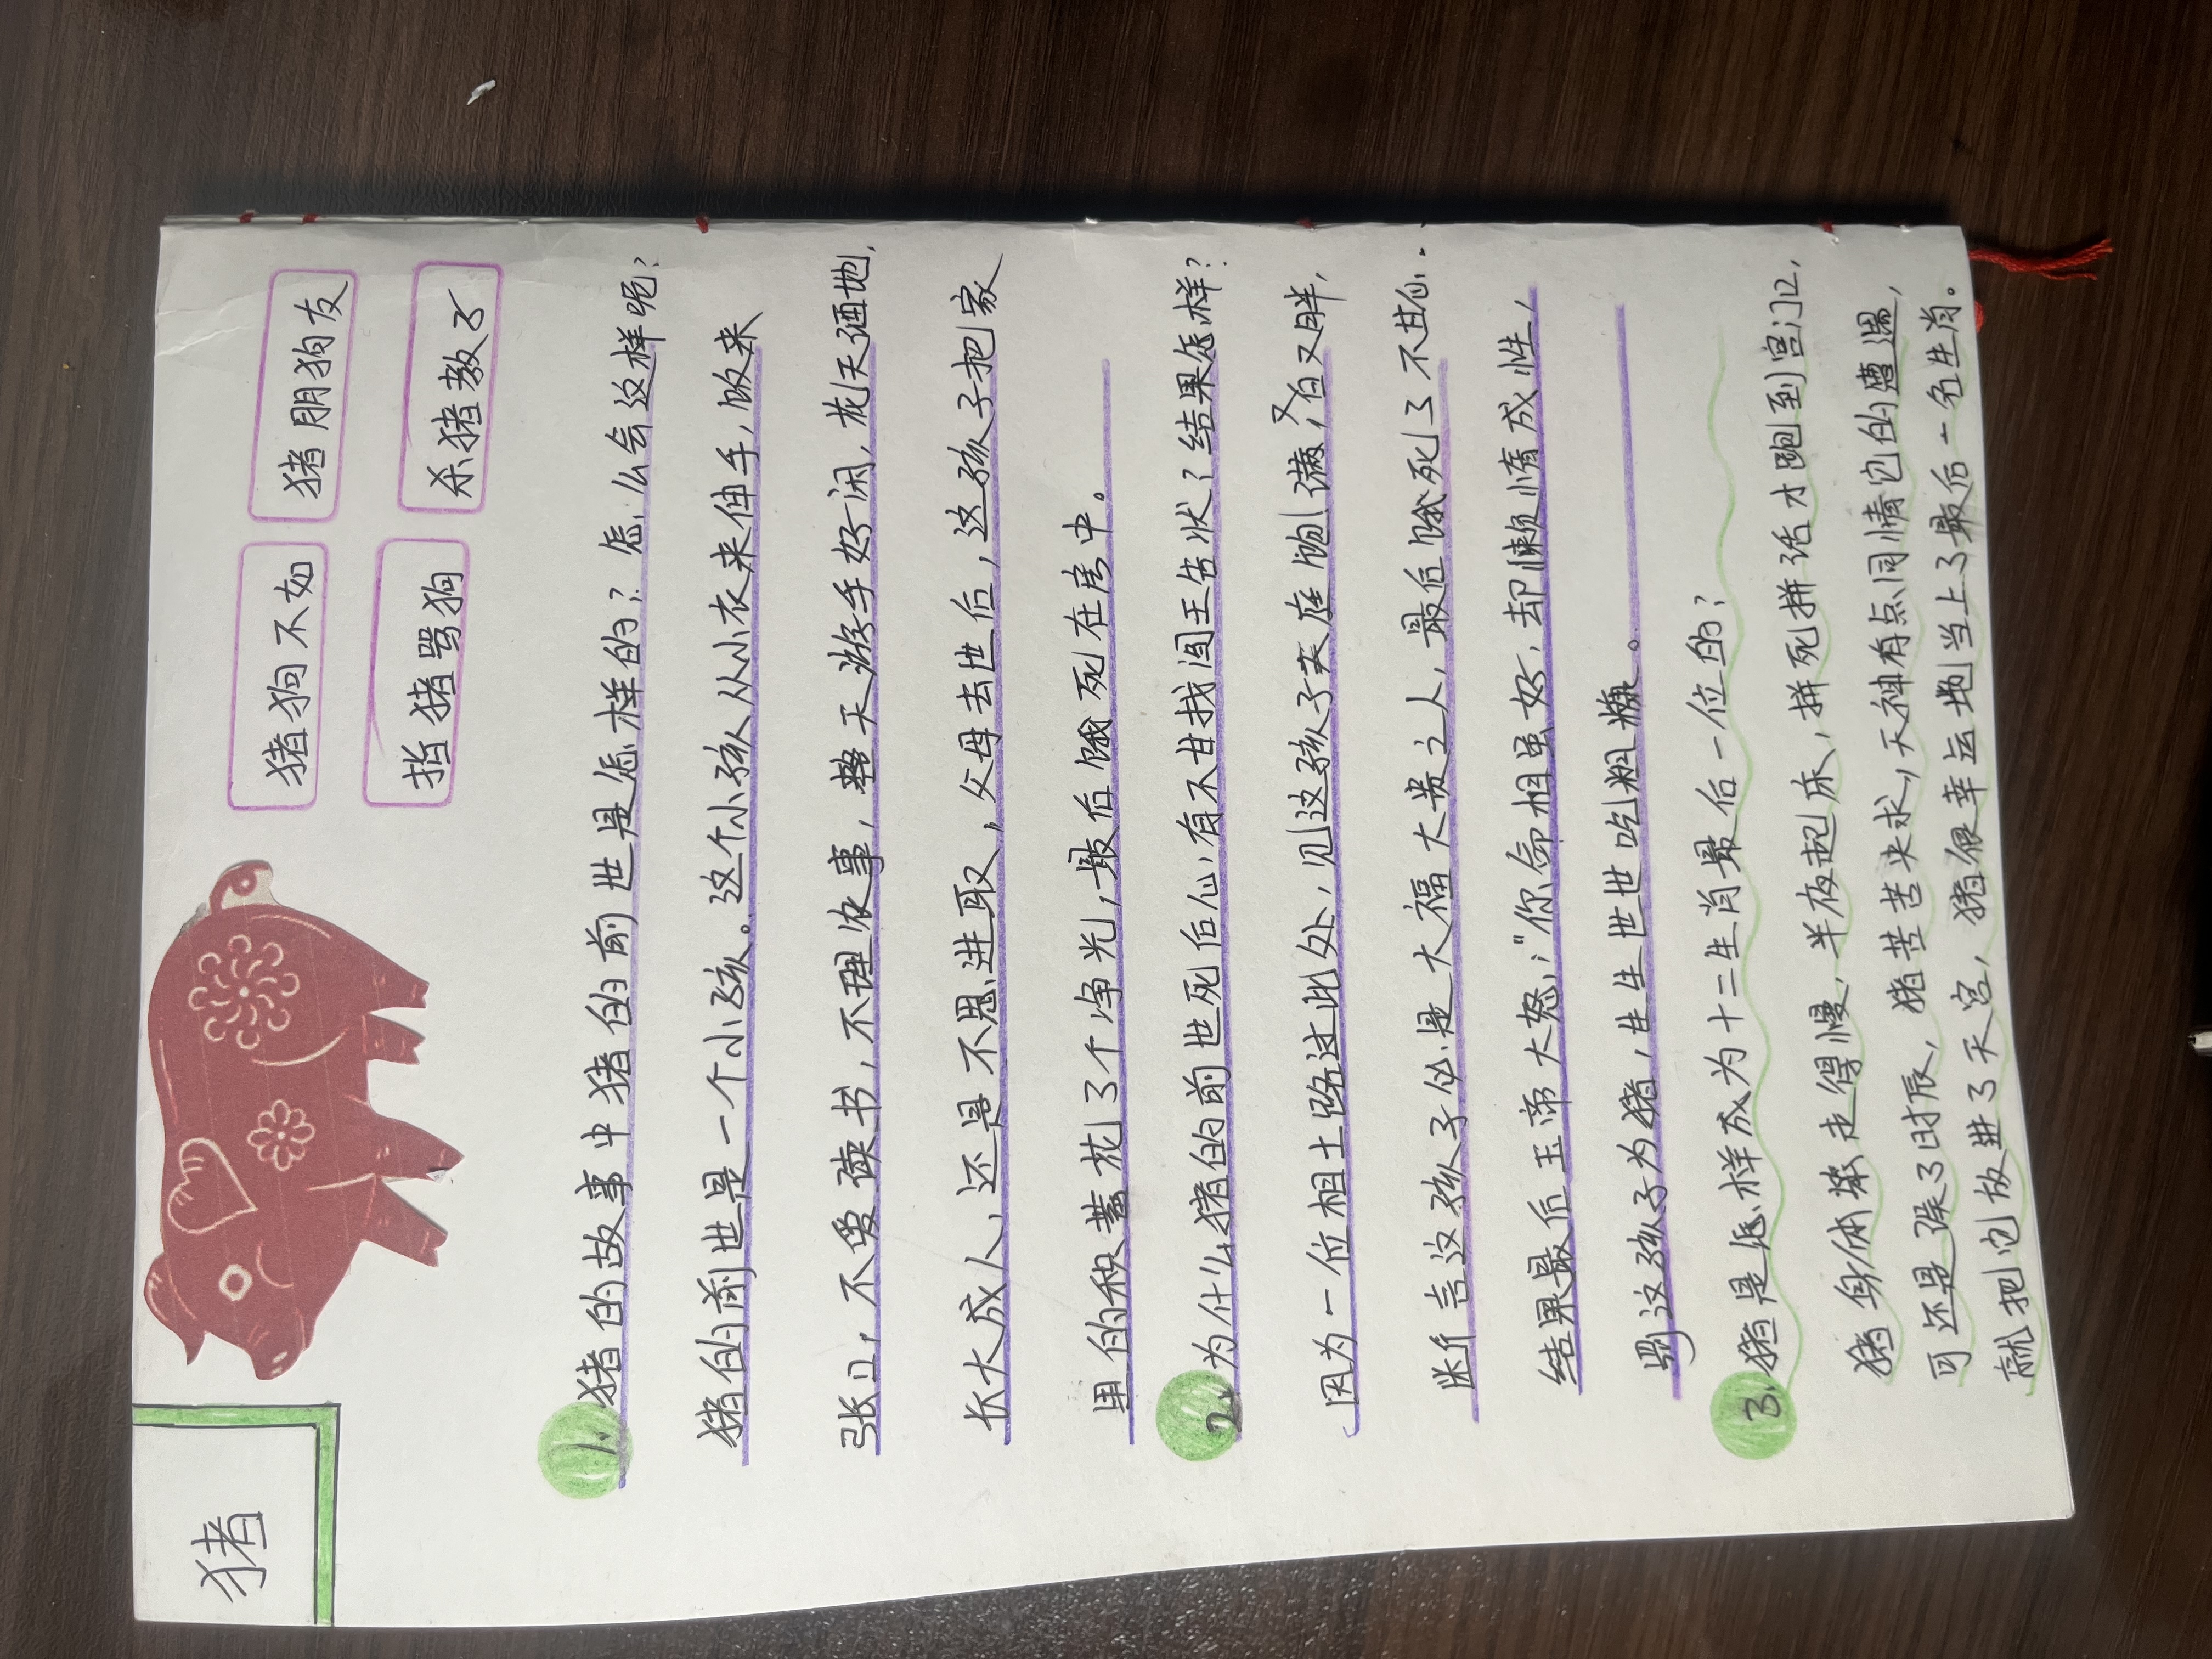 猪
猪狗不如
猪朋狗友
指猪骂狗
杀猪教子
1. 猪的故事中猪的前世是怎样的?怎么会这样呢?
猪的前世是一个小孩。这个小孩从小衣来伸手,饭来
张口,不爱读书,不理农事,整天游手好闲,花天酒地,
长大成人,还是不思进取,父母去世后,这孩子把家
里的积蓄花了个净光,最后饿死在房中。
2. 为什么猪的前世死后心有不甘找阎王告状?结果怎样?
因为一位相士路过此处,见这孩子天庭饱满,又白又胖,
断言这孩子必是大福大贵之人,最后饿死了不甘心.
结果最后玉帝大怒:"你命相虽好,却懒惰成性,
罚这孩子为猪,生生世世吃粗糠。
3. 猪是怎样成为十二生肖最后一位的?
猪身体笨走得慢,半夜起床,拼死拼活才跑到宫门口,
可还是误了时辰,猪苦苦央求,天神有点同情它的遭遇,
就把它放进了天宫,猪很幸运地当上了最后一名生肖。